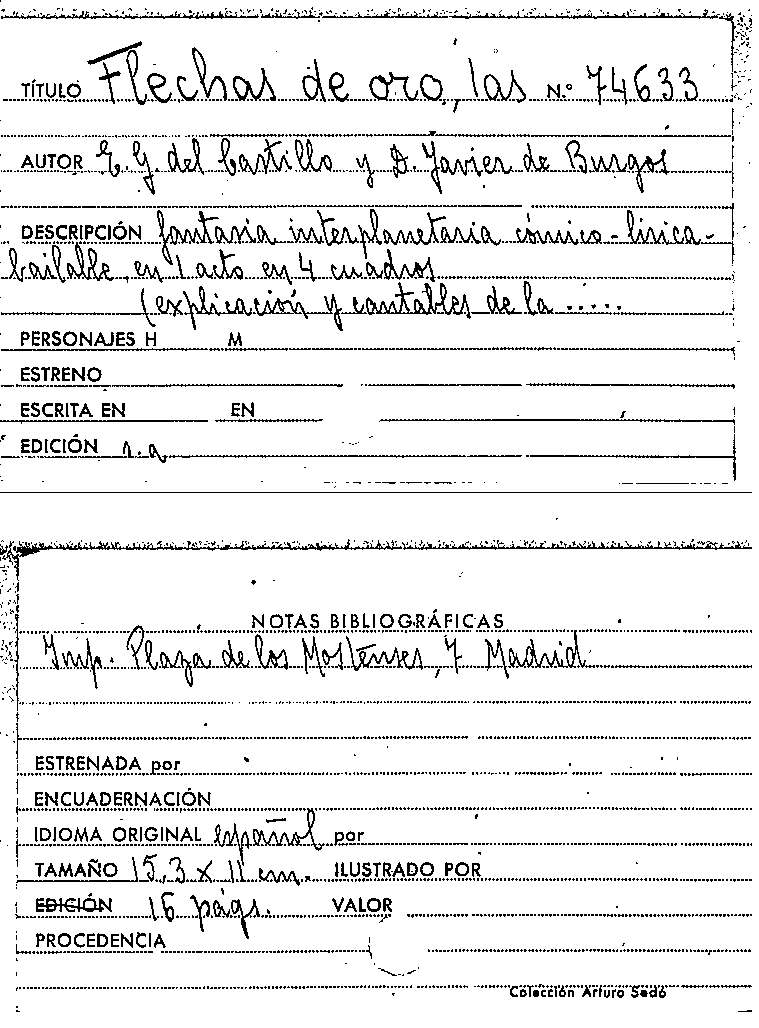 TÍTULO Flechas de oro, las N.º 74633
AUTOR E. G. del Castillo y D. Javier de Burgos
DESCRIPCIÓN fantasia interplanetaria cómico-lírica-
bailable, en 1 acto en 4 cuadros
(explicación y cantables de la .....
PERSONAJES H M
ESTRENO
ESCRITA EN EN
EDICIÓN s.a
NOTAS BIBLIOGRÁFICAS
Imp. Plaza de los Mostenses, 7 Madrid
ESTRENADA por
ENCUADERNACIÓN
IDIOMA ORIGINAL español por
TAMAÑO 15,3 x 11 cm. ILUSTRADO POR
EDICIÓN 16 págs. VALOR
PROCEDENCIA
Colección Arturo Sedó